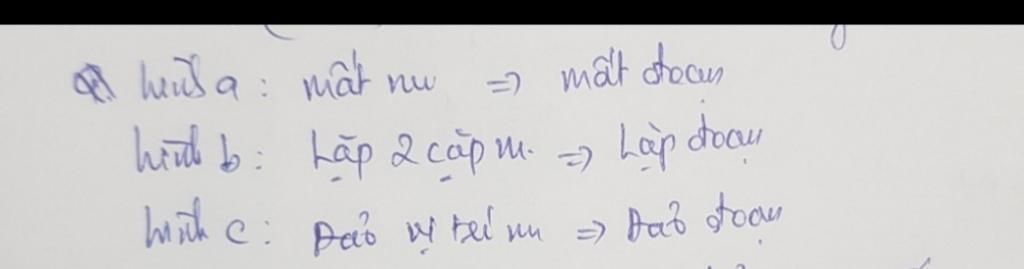 hình a: mất nu => mất đoạn
hình b: Lặp 2 cặp nu. => Lặp đoạn
hình c: Đảo vị trí nu => Đảo đoạn